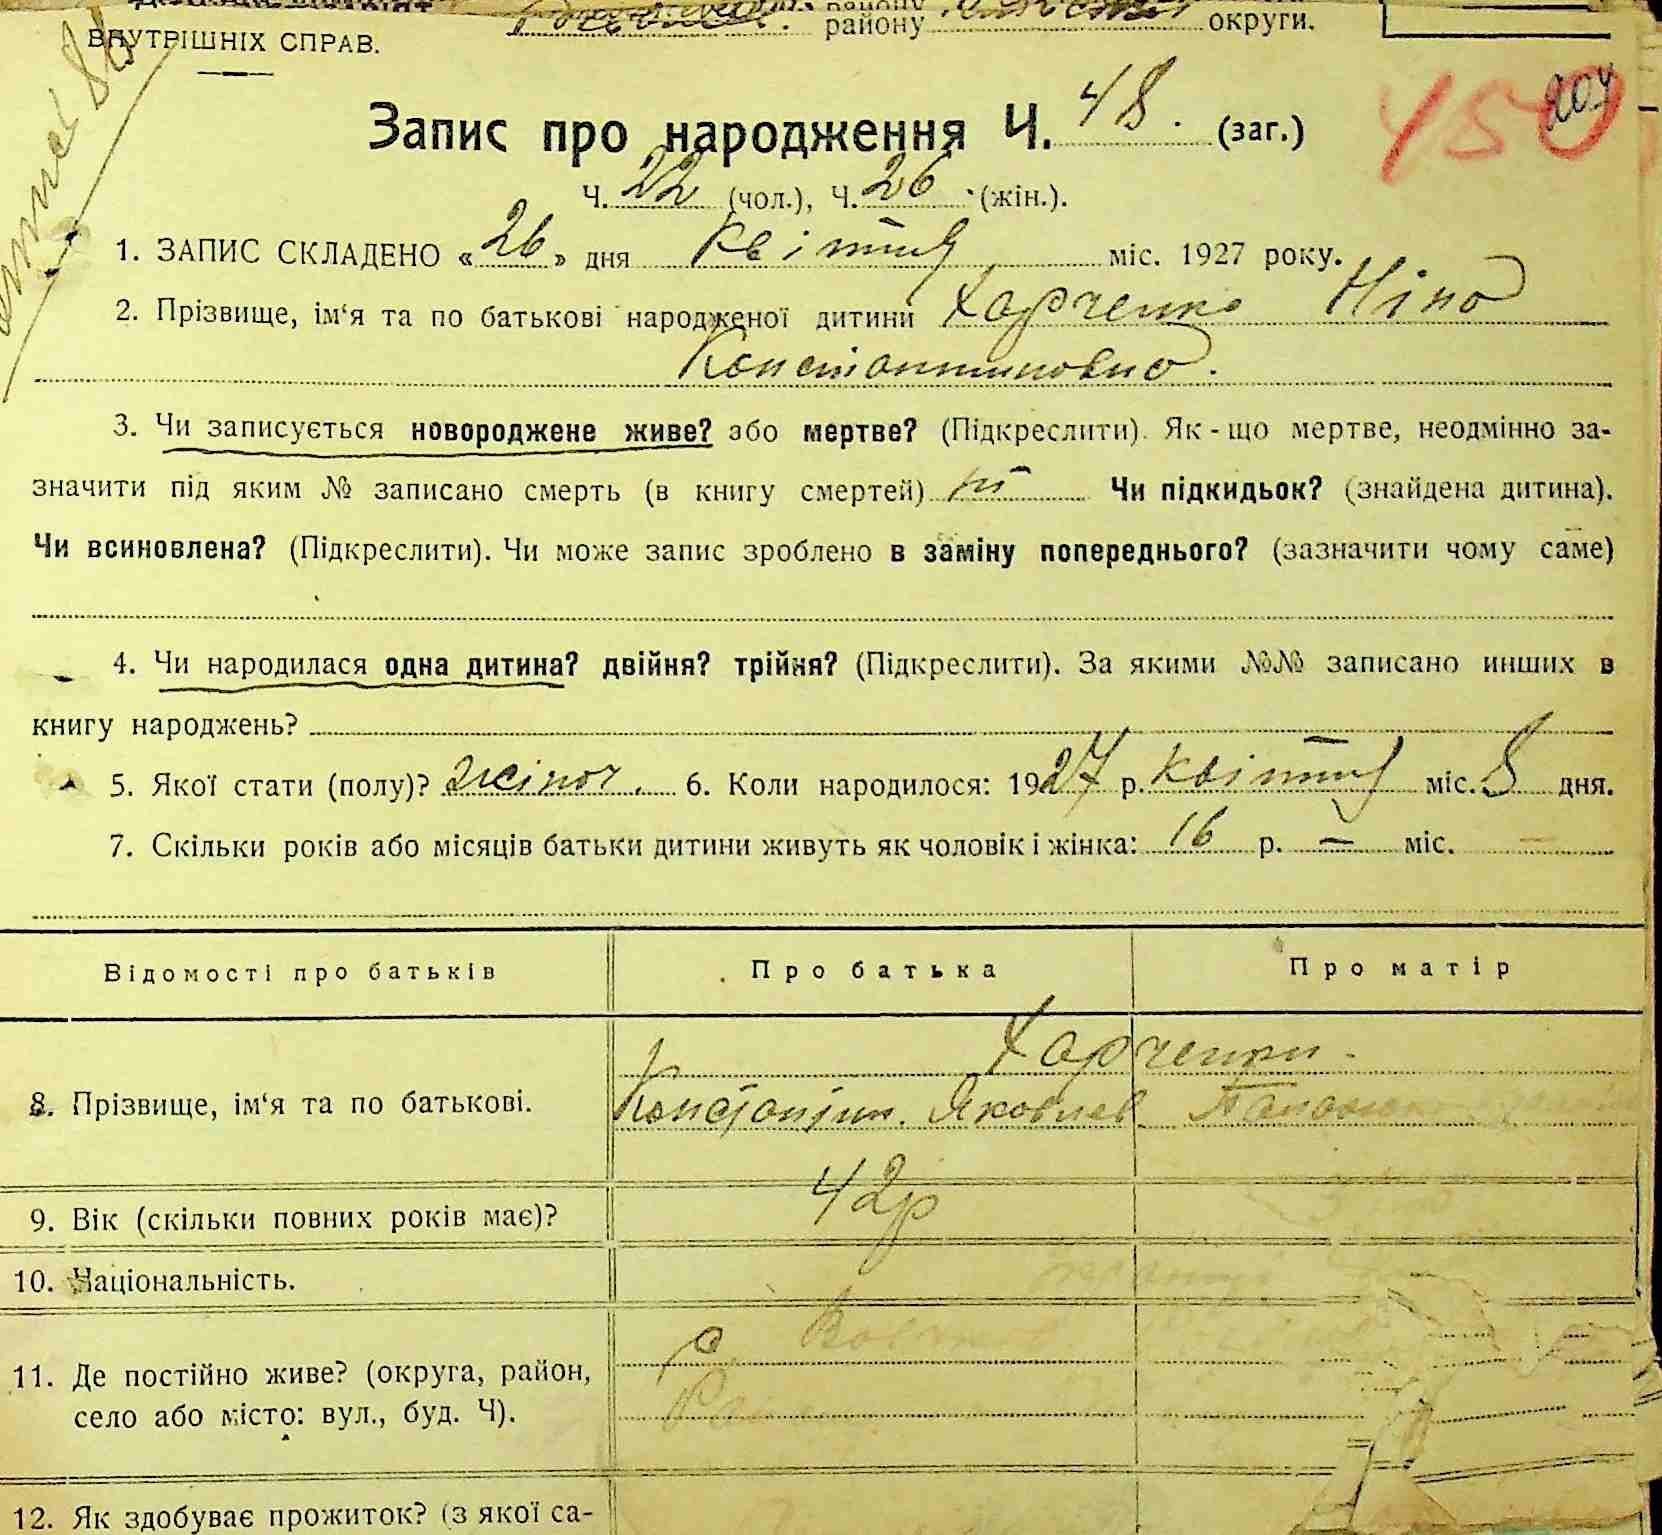 району округи.
ВНУТРІШНІХ СПРАВ.
Запис про народження Ч. 48. (заг.)
204
450
Ч. 22 (чол.), Ч. 26 (жін.).
1. ЗАПИС СКЛАДЕНО «26» дня квітня міс. 1927 року.
2. Прізвище, ім‘я та по батькові народженої дитини Харченко Ніна
Константиновна.
3. Чи записується новороджене живе? або мертве? (Підкреслити). Як-що мертве, неодмінно за-
значити під яким № записано смерть (в книгу смертей) Чи підкидьок? (знайдена дитина).
Чи всиновлена? (Підкреслити). Чи може запис зроблено в заміну попереднього? (зазначити чому саме)
4. Чи народилася одна дитина? двійня? трійня? (Підкреслити). За якими №№ записано инших в
книгу народжень?
5. Якої стати (полу)? жіноч. 6. Коли народилося: 1927 р. квітня міс. 8 дня.
7. Скільки років або місяців батьки дитини живуть як чоловік і жінка: 16 р. — міс. —
Відомості про батьків Про батька Про матір
Харченки.
8. Прізвище, ім‘я та по батькові. Констонтин. Яковлев
9. Вік (скільки повних років має)? 42р
10. Національність.
11. Де постійно живе? (округа, район,
село або місто: вул., буд. Ч).
12. Як здобуває прожиток? (з якої са-